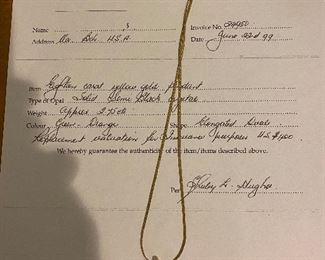 Name $ Invoice No.
Address U.S.A Date June 23rd 99
Item Eighteen carat yellow gold pendant
Type of Opal Solid Semi Black crystal
Weight Approx
Colour Green-Orange Shape Elongated Oval
Replacement valuation for Insurance purposes U.S.
We hereby guarantee the authenticity of the item/items described above.
Per
Hughes